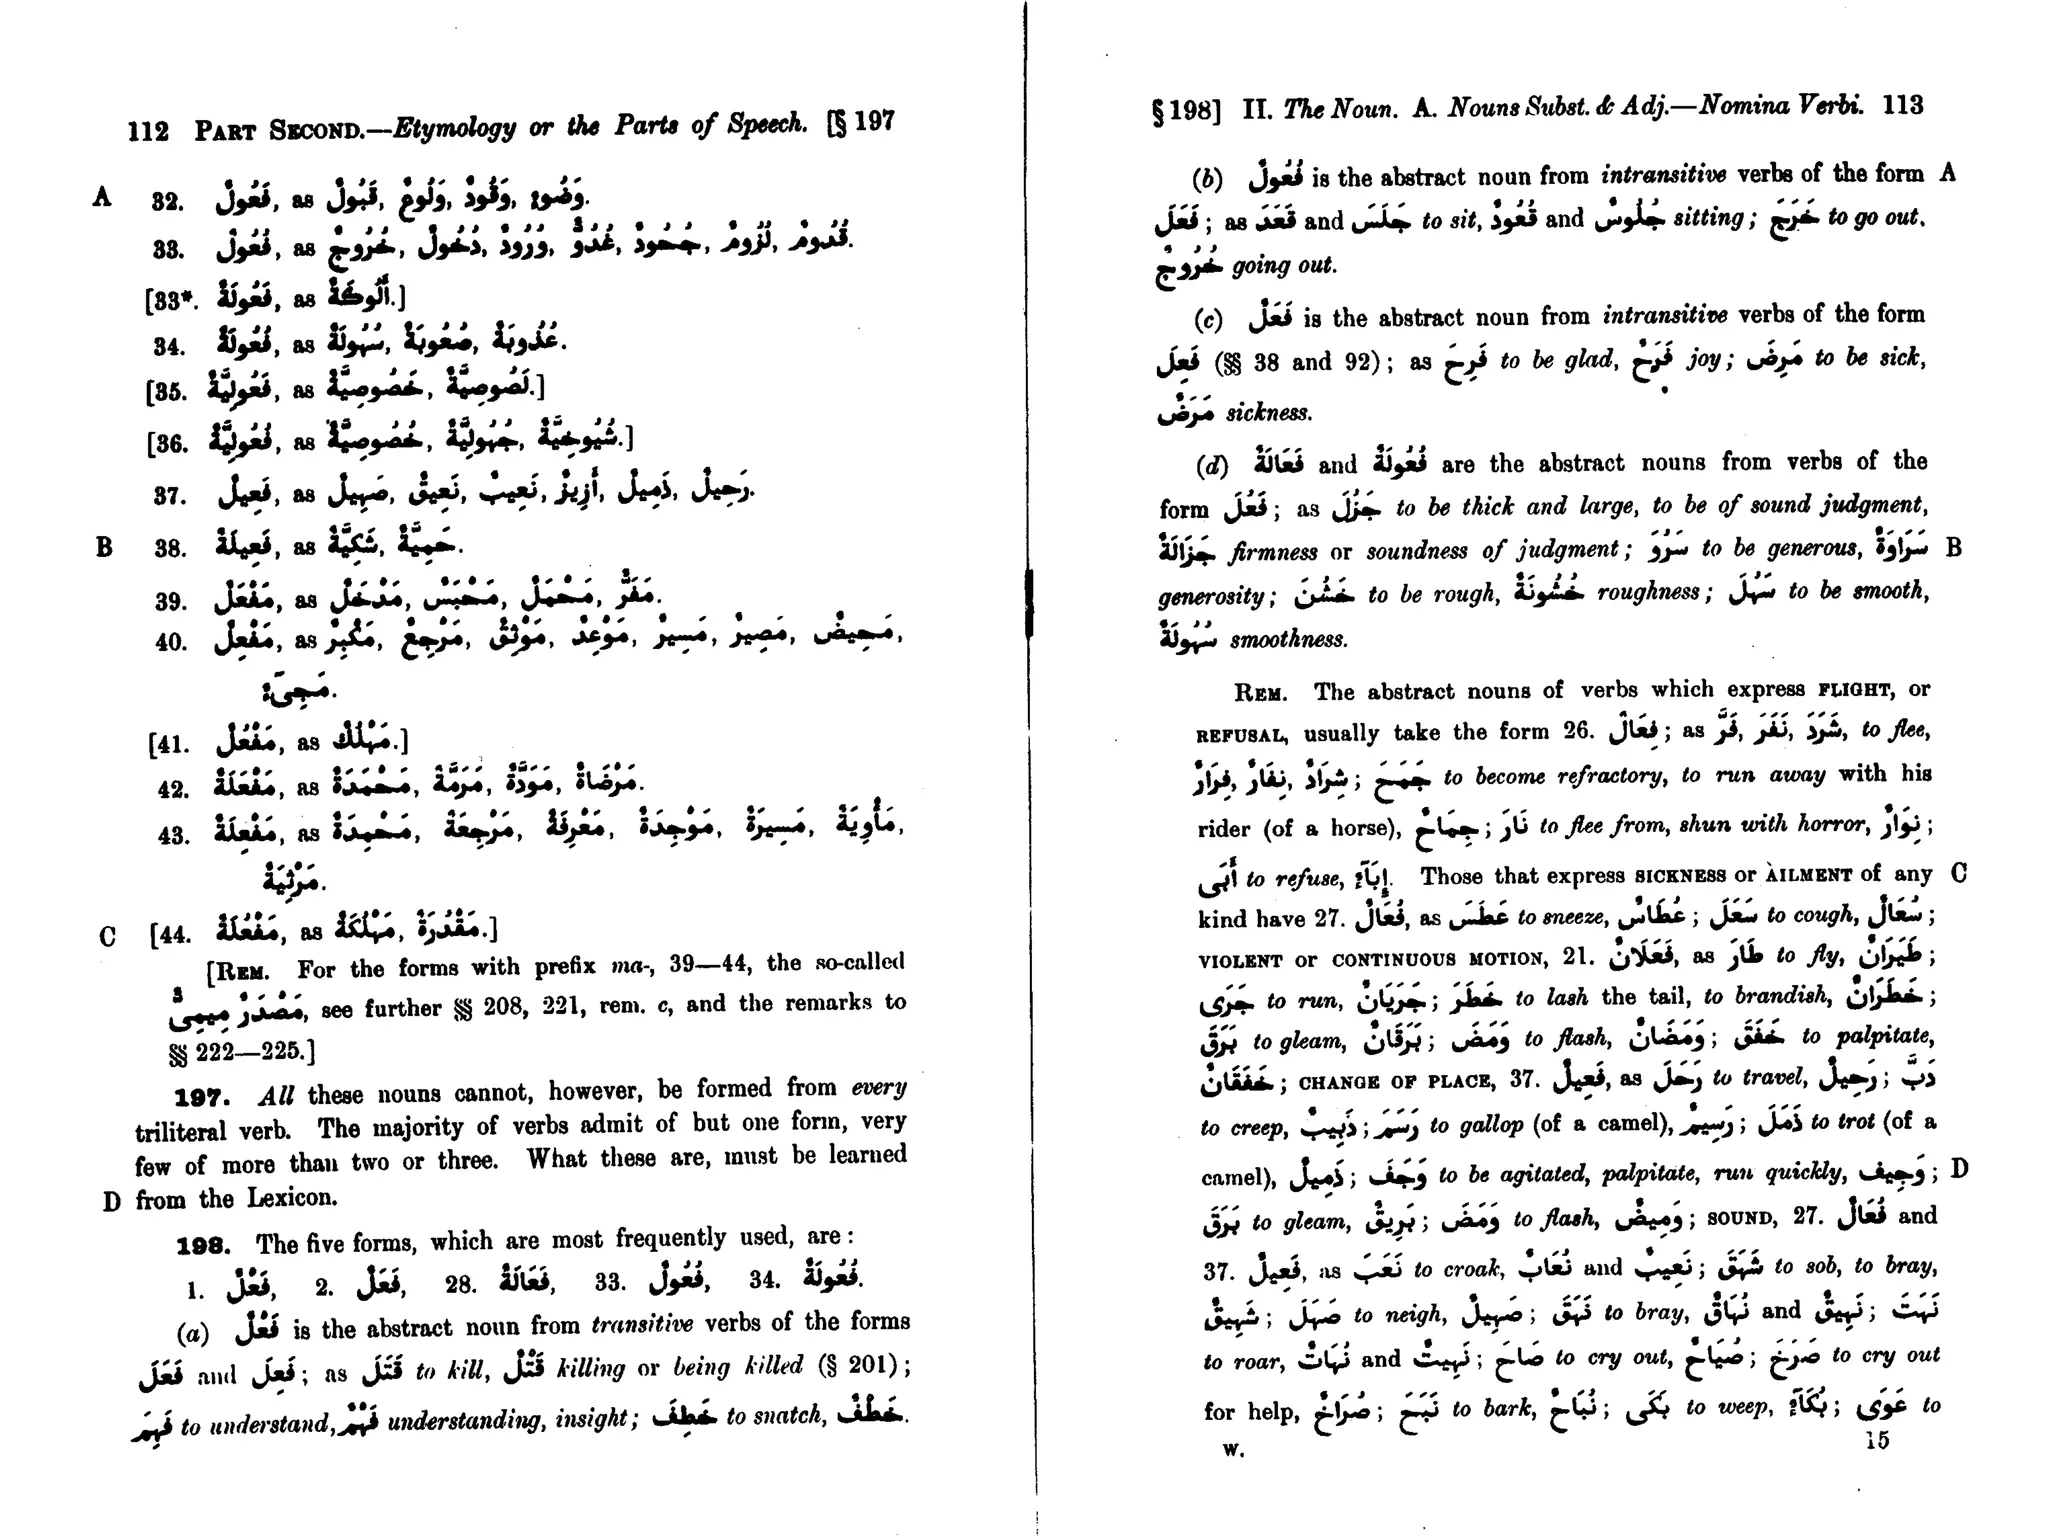 112 PART SECOND.—Etymology or the Parts of Speech. [§ 197
A 32. فَعُولٌ, as قَبُولٌ, وَلُوعٌ, وَقُودٌ, وَضُوءٌ.
33. فُعُولٌ, as خُرُوجٌ, دُخُولٌ, وُرُودٌ, غُدُوٌّ, جُحُودٌ, لُزُومٌ, قُدُومٌ.
[33*. فَعُولَةٌ, as أَلُوكَةٌ.]
34. فُعُولَةٌ, as سُهُولَةٌ, صُعُوبَةٌ, عُذُوبَةٌ.
[35. فَعُولِيَّةٌ, as خَصُوصِيَّةٌ, لَصُوصِيَّةٌ.]
[36. فُعُولِيَّةٌ, as خُصُوصِيَّةٌ, جُهُولِيَّةٌ, شُيُوخِيَّةٌ.]
37. فَعِيلٌ, as صَهِيلٌ, نَعِيقٌ, نَعِيبٌ, أَزِيزٌ, ذَمِيلٌ, رَحِيلٌ.
B 38. فَعِيلَةٌ, as شَكِيَّةٌ, حَمِيَّةٌ.
39. مَفْعَلٌ, as مَدْخَلٌ, مَحْبَسٌ, مَحْمَلٌ, مَفَرٌّ.
40. مَفْعِلٌ, as مَكْبِرٌ, مَرْجِعٌ, مَوْثِقٌ, مَوْعِدٌ, مَسِيرٌ, مَصِيرٌ, مَحِيضٌ,
مَجِىءٌ.
[41. مَفْعُلٌ, as مَهْلُكٌ.]
42. مَفْعَلَةٌ, as مَحْمَدَةٌ, مَرَمَّةٌ, مَوَدَّةٌ, مَرْضَاةٌ.
43. مَفْعِلَةٌ, as مَحْمِدَةٌ, مَرْجِعَةٌ, مَعْرِفَةٌ, مَوْجِدَةٌ, مَسِيرَةٌ, مَأْوِيَةٌ,
مَرْثِيَةٌ.
C [44. مَفْعُلَةٌ, as مَهْلُكَةٌ, مَقْدُرَةٌ.]
[REM. For the forms with prefix ma-, 39—44, the so-called
مَصْدَرٌ مِيمِىٌّ, see further §§ 208, 221, rem. c, and the remarks to
§§ 222—225.]
197. All these nouns cannot, however, be formed from every
triliteral verb. The majority of verbs admit of but one form, very
few of more than two or three. What these are, must be learned
D from the Lexicon.
198. The five forms, which are most frequently used, are :
1. فَعْلٌ, 2. فَعَلٌ, 28. فَعَالَةٌ, 33. فُعُولٌ, 34. فُعُولَةٌ.
(a) فَعْلٌ is the abstract noun from transitive verbs of the forms
فَعَلَ and فَعِلَ; as قَتَلَ to kill, قَتْلٌ killing or being killed (§ 201);
فَهِمَ to understand, فَهْمٌ understanding, insight; خَطِفَ to snatch, خَطْفٌ.
§ 198] II. The Noun. A. Nouns Subst. & Adj.—Nomina Verbi. 113
(b) فُعُولٌ is the abstract noun from intransitive verbs of the form A
فَعَلَ; as قَعَدَ and جَلَسَ to sit, قُعُودٌ and جُلُوسٌ sitting; خَرَجَ to go out.
خُرُوجٌ going out.
(c) فَعَلٌ is the abstract noun from intransitive verbs of the form
فَعِلَ (§§ 38 and 92); as فَرِحَ to be glad, فَرَحٌ joy; مَرِضَ to be sick,
مَرَضٌ sickness.
(d) فَعَالَةٌ and فُعُولَةٌ are the abstract nouns from verbs of the
form فَعُلَ; as جَزُلَ to be thick and large, to be of sound judgment,
جَزَالَةٌ firmness or soundness of judgment; سَرُوَ to be generous, سَرَاوَةٌ B
generosity; خَشُنَ to be rough, خُشُونَةٌ roughness; سَهُلَ to be smooth,
سُهُولَةٌ smoothness.
REM. The abstract nouns of verbs which express FLIGHT, or
REFUSAL, usually take the form 26. فِعَالٌ; as فَرَّ, نَفَرَ, شَرَدَ, to flee,
فِرَارٌ, نِفَارٌ, شِرَادٌ; جَمَحَ to become refractory, to run away with his
rider (of a horse), جِمَاحٌ; نَارَ to flee from, shun with horror, نِوَارٌ;
أَبَى to refuse, إِبَآءٌ. Those that express SICKNESS or AILMENT of any C
kind have 27. فُعَالٌ, as عَطَسَ to sneeze, عُطَاسٌ; سَعَلَ to cough, سُعَالٌ;
VIOLENT or CONTINUOUS MOTION, 21. فَعَلَانٌ, as طَارَ to fly, طَيَرَانٌ;
جَرَى to run, جَرَيَانٌ; خَطَرَ to lash the tail, to brandish, خَطَرَانٌ;
بَرَقَ to gleam, بَرَقَانٌ; وَمَضَ to flash, وَمَضَانٌ; خَفَقَ to palpitate,
خَفَقَانٌ; CHANGE OF PLACE, 37. فَعِيلٌ, as رَحَلَ to travel, رَحِيلٌ; دَبَّ
to creep, دَبِيبٌ; رَسَمَ to gallop (of a camel), رَسِيمٌ; ذَمَلَ to trot (of a
camel), ذَمِيلٌ; وَجَفَ to be agitated, palpitate, run quickly, وَجِيفٌ; D
بَرَقَ to gleam, بَرِيقٌ; وَمَضَ to flash, وَمِيضٌ; SOUND, 27. فُعَالٌ and
37. فَعِيلٌ, as نَعَبَ to croak, نُعَابٌ and نَعِيبٌ; شَهَقَ to sob, to bray,
شَهِيقٌ; صَهَلَ to neigh, صَهِيلٌ; نَهَقَ to bray, نُهَاقٌ and نَهِيقٌ; نَهَتَ
to roar, نُهَاتٌ and نَهِيتٌ; صَاحَ to cry out, صُيَاحٌ; صَرَخَ to cry out
for help, صُرَاخٌ; نَبَحَ to bark, نُبَاحٌ; بَكَى to weep, بُكَآءٌ; عَوَى to
W. 15